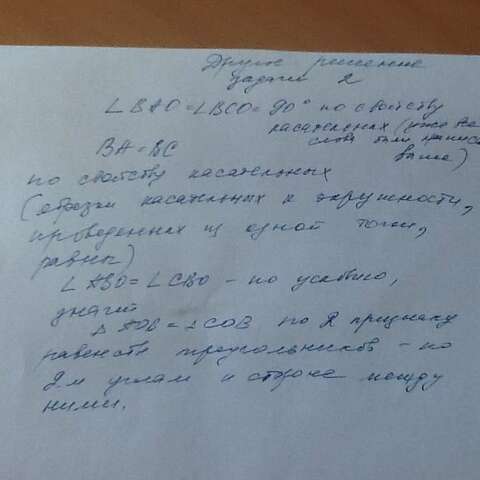 Другое решение
задачи 2
∠BAO = ∠BCO = 90° по свойству
касательных (уже те
слова были написа
выше)
BA = BC
по свойству касательных
(отрезки касательных к окружности,
проведенных из одной точки,
равны)
∠ABO = ∠CBO - по условию,
значит
△AOB = △COB по 2 признаку
равенств треугольников - по
2-м углам и стороне между
ними.